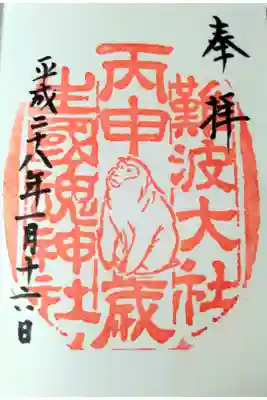 奉拝
難波大社
丙申歳
生國魂神社
平成二十八年一月十六日